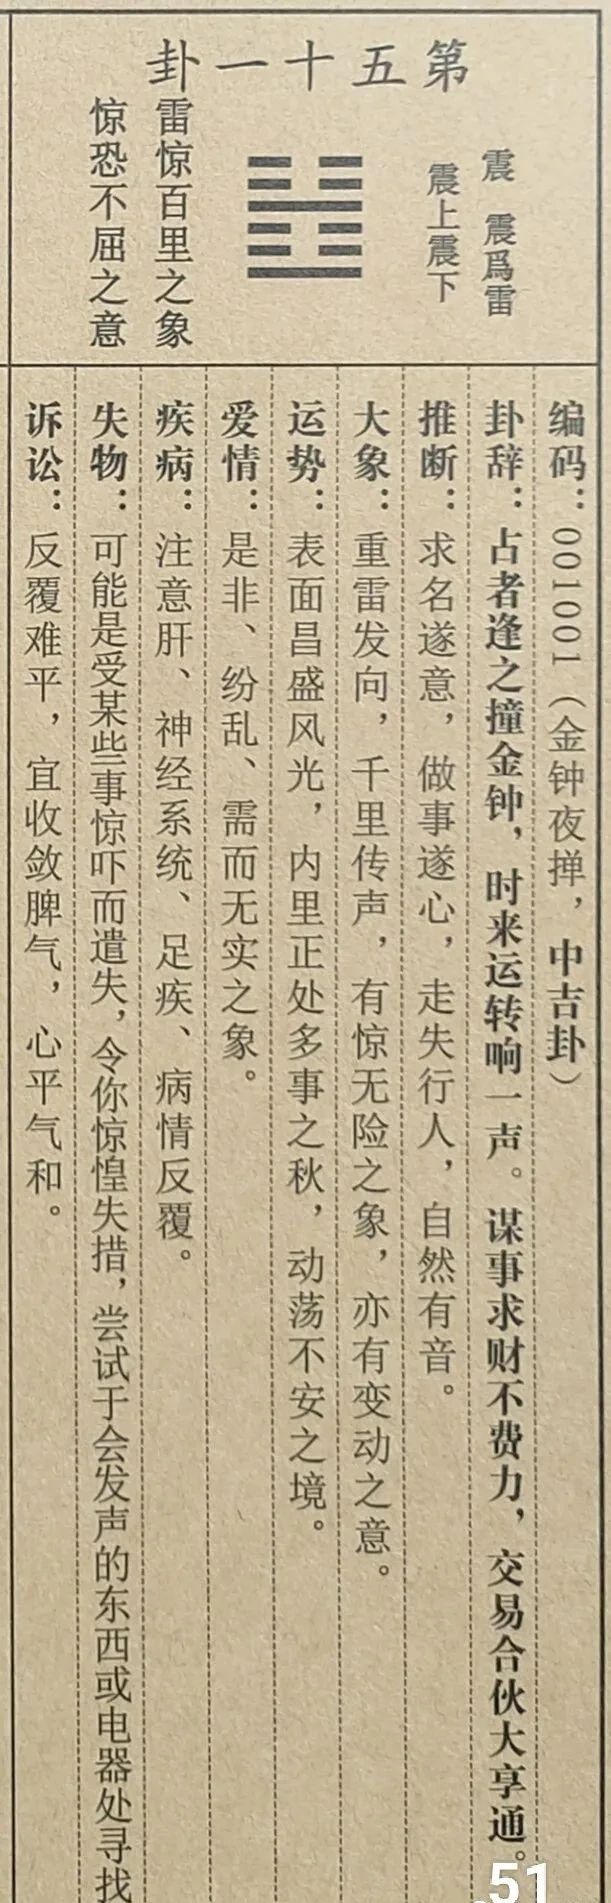 第五十一卦
震 震爲雷
震上震下
雷惊百里之象
惊恐不屈之意
编码：001001（金钟夜撣，中吉卦）
卦辞：占者逢之撞金钟，时来运转响一声。谋事求财不费力，交易合伙大享通。
推断：求名遂意，做事遂心，走失行人，自然有音。
大象：重雷发向，千里传声，有惊无险之象，亦有变动之意。
运势：表面昌盛风光，内里正处多事之秋，动荡不安之境。
爱情：是非、纷乱、需而无实之象。
疾病：注意肝、神经系统、足疾、病情反覆。
失物：可能是受某些事惊吓而遣失，令你惊惶失措，尝试于会发声的东西或电器处寻找
诉讼：反覆难平，宜收敛脾气，心平气和。
51